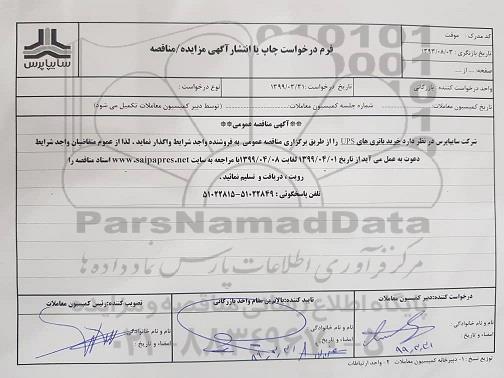 سایپاپرس
فرم درخواست چاپ یا انتشار آگهی مزایده/مناقصه
کد مدرک : موقت
تاریخ بازنگری : ۱۳۹۳/۰۸/۰۳
صفحه: ... از ...
واحد درخواست کننده : بازرگانی
تاریخ درخواست : ۱۳۹۹/۰۳/۳۱
نوع درخواست :
تاریخ کمیسیون معاملات
شماره جلسه کمیسیون معاملات
(توسط دبیر کمیسیون معاملات تکمیل می شود)
**آگهی مناقصه عمومی**
شرکت سایپاپرس در نظر دارد خرید باتری های UPS را از طریق برگزاری مناقصه عمومی به فروشنده واجد شرایط واگذار نماید . لذا از عموم متقاضیان واجد شرایط
دعوت به عمل می آید از تاریخ ۱۳۹۹/۰۴/۰۱ لغایت ۱۳۹۹/۰۴/۰۸ با مراجعه به سایت www.saipapres.net اسناد مناقصه را
رویت ، دریافت و تسلیم نمائید .
تلفن پاسخگوئی : ۵۱۰۲۲۸۴۹-۵۱۰۲۲۸۱۵
ParsNamadData
مرکز فرآوری اطلاعات پارس نماد داده ها
درخواست کننده:دبیر کمیسیون معاملات
تایید کننده:بالاترین مقام واحد بازرگانی
تصویب کننده:رئیس کمیسیون معاملات
نام و نام خانوادگی
امضاء و تاریخ :
۹۹,۳,۳۱
نام و نام خانوادگی
نام و نام خانوادگی :
امضاء و تاریخ :
توزیع نسخ : ۱- دبیرخانه کمیسیون معاملات ۲- واحد ارتباطات